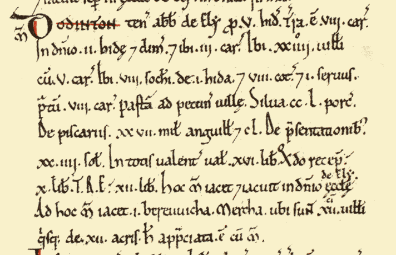 m̃ Dodinton ten abb̃ de Ely p. v. hid. Tra. ē. viii. car̃.
In dñio. ii. hidę ⁊ dim̃. ⁊ ibi. iii. car̃. Ibi. xxiiii. uilłi
cū. v. car̃. Ibi. viii. sochi. de. i. hida. ⁊ viii. cot̃. ⁊ i. seruus.
p̃tū. viii. car̃. Pasťa ad pecun̄ uillę. Silua. cc. l. porc̃.
De piscariis. xxvii. mił anguilł ⁊ cł. De p̃sentationib᷒
xx.iiii. sol̃. In totis ualent ual̃. xvi. lib̃. Q̃do recep̃.
x. lib̃. T.R.E. xii. lib̃. Hoc m̃ iacet ⁊ iacuit in dñio eccłę de Ely.
Ad hoc m̃ iacet. i. bereuuicha. Mercha. ubi sunt xii. uilłi
q̃sq̨. de. xii. acris. h̃ app̃ciata. ē cū m̃.